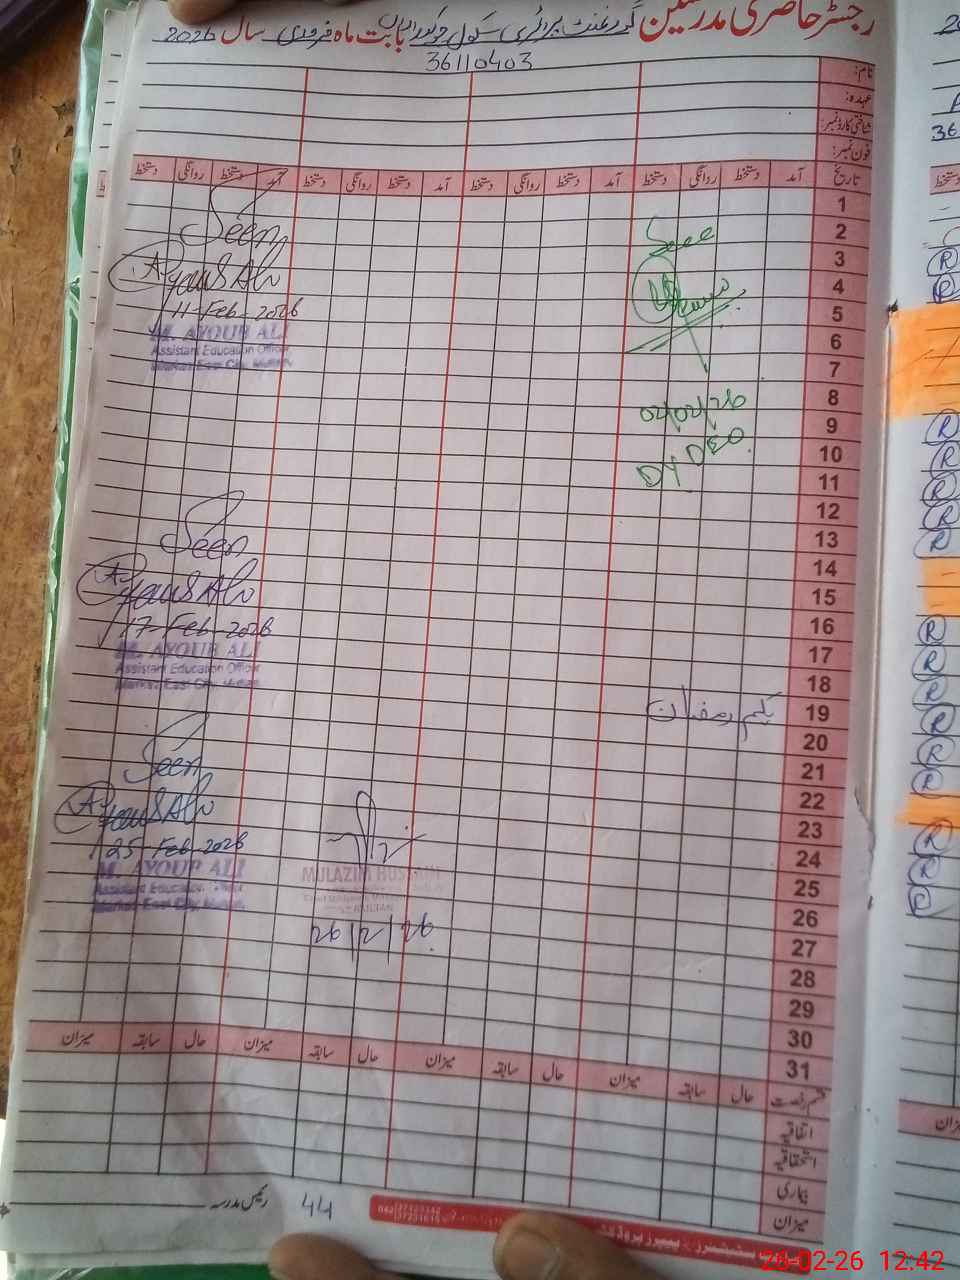 رجسٹر حاضری مدرسین گورنمنٹ پرائمری سکول بابت ماہ فروری سال 2026
36110403
نام:
عہدہ:
شناختی کارڈ نمبر:
فون نمبر:
تاریخ آمد دستخط روانگی دستخط آمد دستخط روانگی دستخط آمد دستخط روانگی دستخط آمد دستخط روانگی دستخط
1
2
3
4
5
6
7
8
9
10
11
12
13
14
15
16
17
18
19
20
21
22
23
24
25
26
27
28
29
30
31
02/02/26
DY DEO
یکم رمضان
Seen
Ayoub Ali
11-Feb-2026
M. AYOUB ALI
Assistant Education Officer
Markaz East City, Multan
Seen
Ayoub Ali
17-Feb-2026
M. AYOUB ALI
Assistant Education Officer
Markaz East City, Multan
Seen
Ayoub Ali
25-Feb-2026
M. AYOUB ALI
Assistant Education Officer
Markaz East City, Multan
MULAZIM HUSSAIN
MULTAN
26/2/26
قسم رخصت حال سابقہ میزان حال سابقہ میزان حال سابقہ میزان حال سابقہ میزان
اتفاقیہ
استحقاقیہ
بیماری
میزان
رئیس مدرسہ
44
28-02-26 12:42